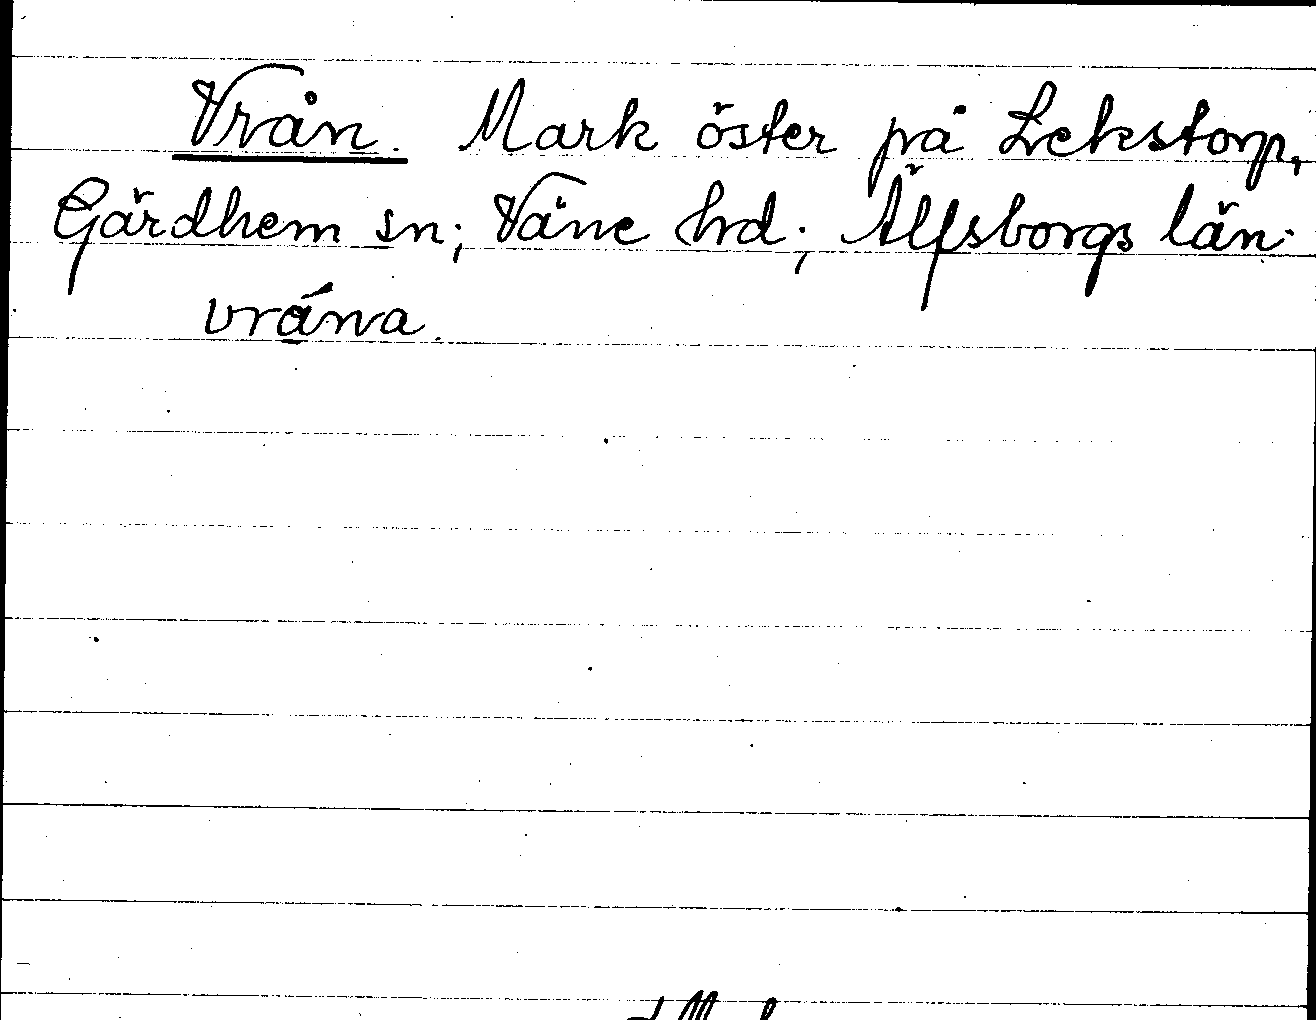 Vrån. Mark öster på Lekstorp,
Gärdhem sn; Väne hd; Älfsborgs län.
vrána.